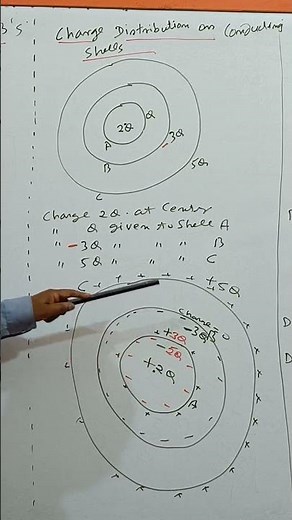 B's
Charge Distribution on Conducting
Shells
2Q
Q
-3Q
5Q
A
B
C
Charge 2Q at Center
" Q given to Shell A
" -3Q " " " B
" 5Q " " " C
C + + + + +5Q
charge = 0
+3Q -3Q B
-2Q
+2Q
A
D
D